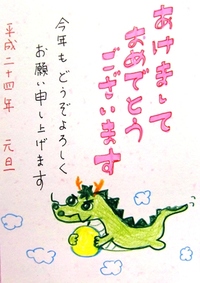 あけまして
おめでとう
ございます
今年もどうぞよろしく
お願い申し上げます
平成二十四年　元旦